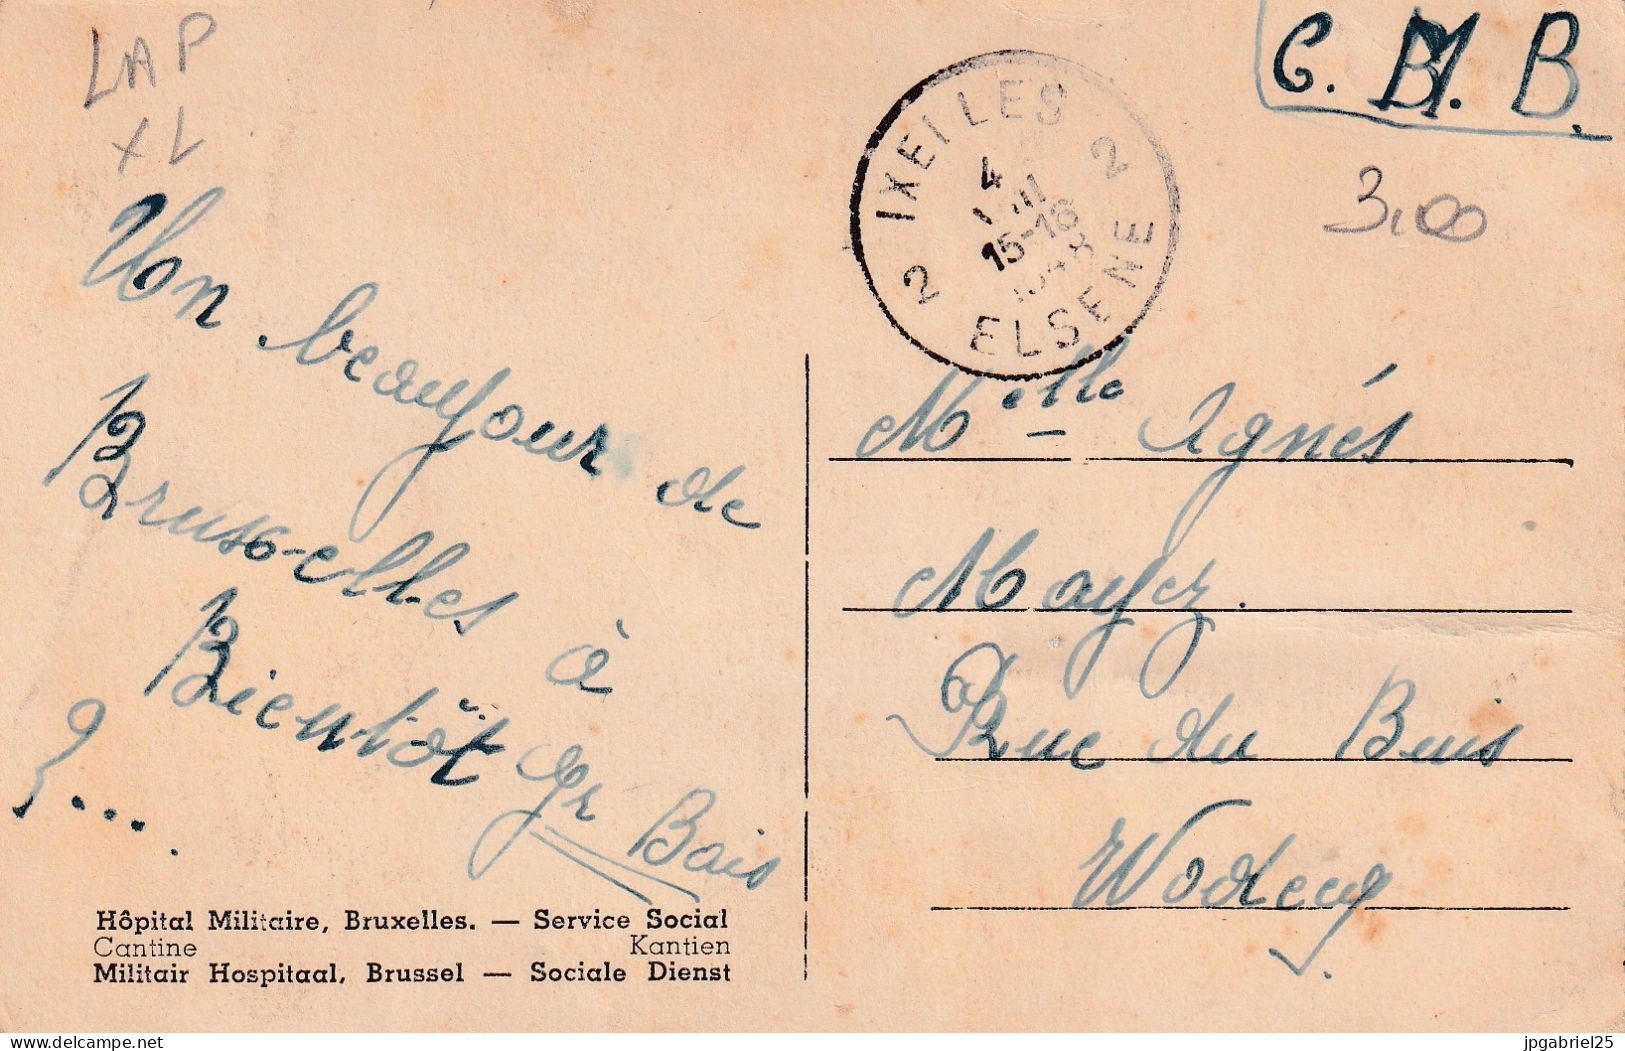 LAP
XL
C. M. B.
3,00
IXELLES 2
4
15-16
2 ELSENE
Un beaujour de
Bruxelles à
Bientôt
? ....
Gr Bais
Melle Agnés
Mayez.
Rue du Buis
Wodecq
Hôpital Militaire, Bruxelles. — Service Social
Cantine Kantien
Militair Hospitaal, Brussel — Sociale Dienst
jpgabriel25